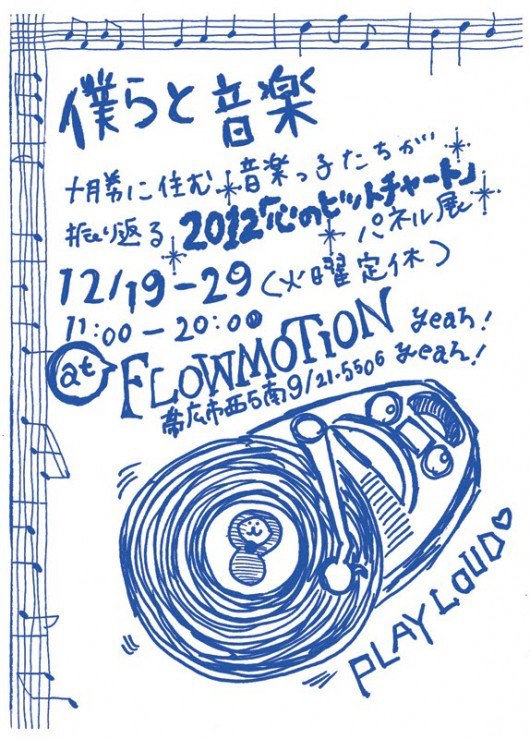 僕らと音楽
十勝に住む音楽っ子たちが
振り返る2012「心のヒットチャート」
パネル展
12/19-29(火曜定休)
11:00-20:00
at FLOWMOTiON yeah!
帯広市西5南9/21-5506 yeah!
PLAY LOUD